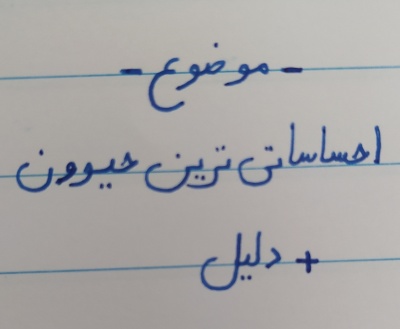 - موضوع -
احساساتی ترین حیوون
+ دلیل